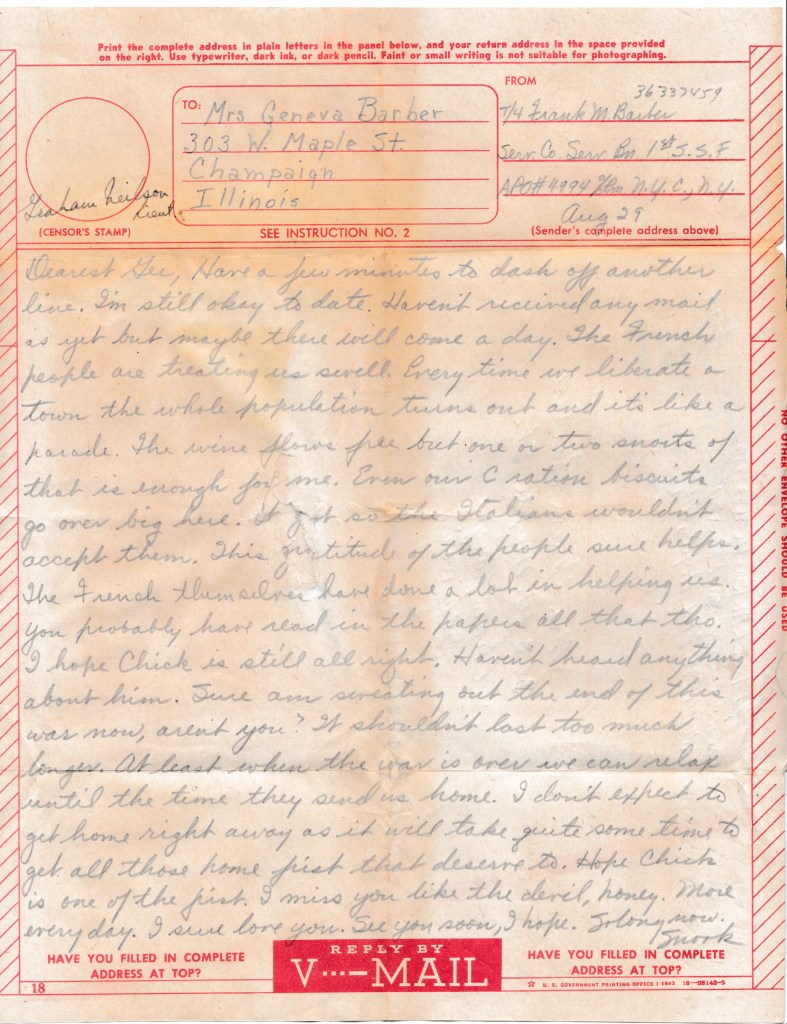 Print the complete address in plain letters in the panel below, and your return address in the space provided
on the right. Use typewriter, dark ink, or dark pencil. Faint or small writing is not suitable for photographing.
FROM
36337459
TO: Mrs Geneva Barber
303 W. Maple St.
Champaign
Illinois
T/4 Frank M Barber
Serv. Co. Serv Bn. 1st S.S.F
APO# 4994 N.Y.C., N.Y.
Aug 29
Graham Neilson
Lieut
(CENSOR'S STAMP)
SEE INSTRUCTION NO. 2
(Sender's complete address above)
Dearest Gee, Have a few minutes to dash off another
line. I'm still okay to date. Haven't received any mail
as yet but maybe there will come a day. The French
people are treating us swell. Every time we liberate a
town the whole population turns out and it's like a
parade. The wine flows free but one or two snorts of
that is enough for me. Even our C ration biscuits
go over big here. It got so the Italians wouldn't
accept them. This gratitude of the people sure helps.
The French themselves have done a lot in helping us.
You probably have read in the papers all that tho.
I hope Chick is still all right. Haven't heard anything
about him. Sure am sweating out the end of this
war now, aren't you? It shouldn't last too much
longer. At least when the war is over we can relax
until the time they send us home. I don't expect to
get home right away as it will take quite some time to
get all those home first that deserve to. Hope Chick
is one of the first. I miss you like the devil, honey. More
every day. I sure love you. See you soon, I hope. So long now.
Snook
NO OTHER ENVELOPE SHOULD BE USED
HAVE YOU FILLED IN COMPLETE
ADDRESS AT TOP?
REPLY BY
V···—MAIL
HAVE YOU FILLED IN COMPLETE
ADDRESS AT TOP?
18
☆ U. S. GOVERNMENT PRINTING OFFICE : 1943 16—28143-5